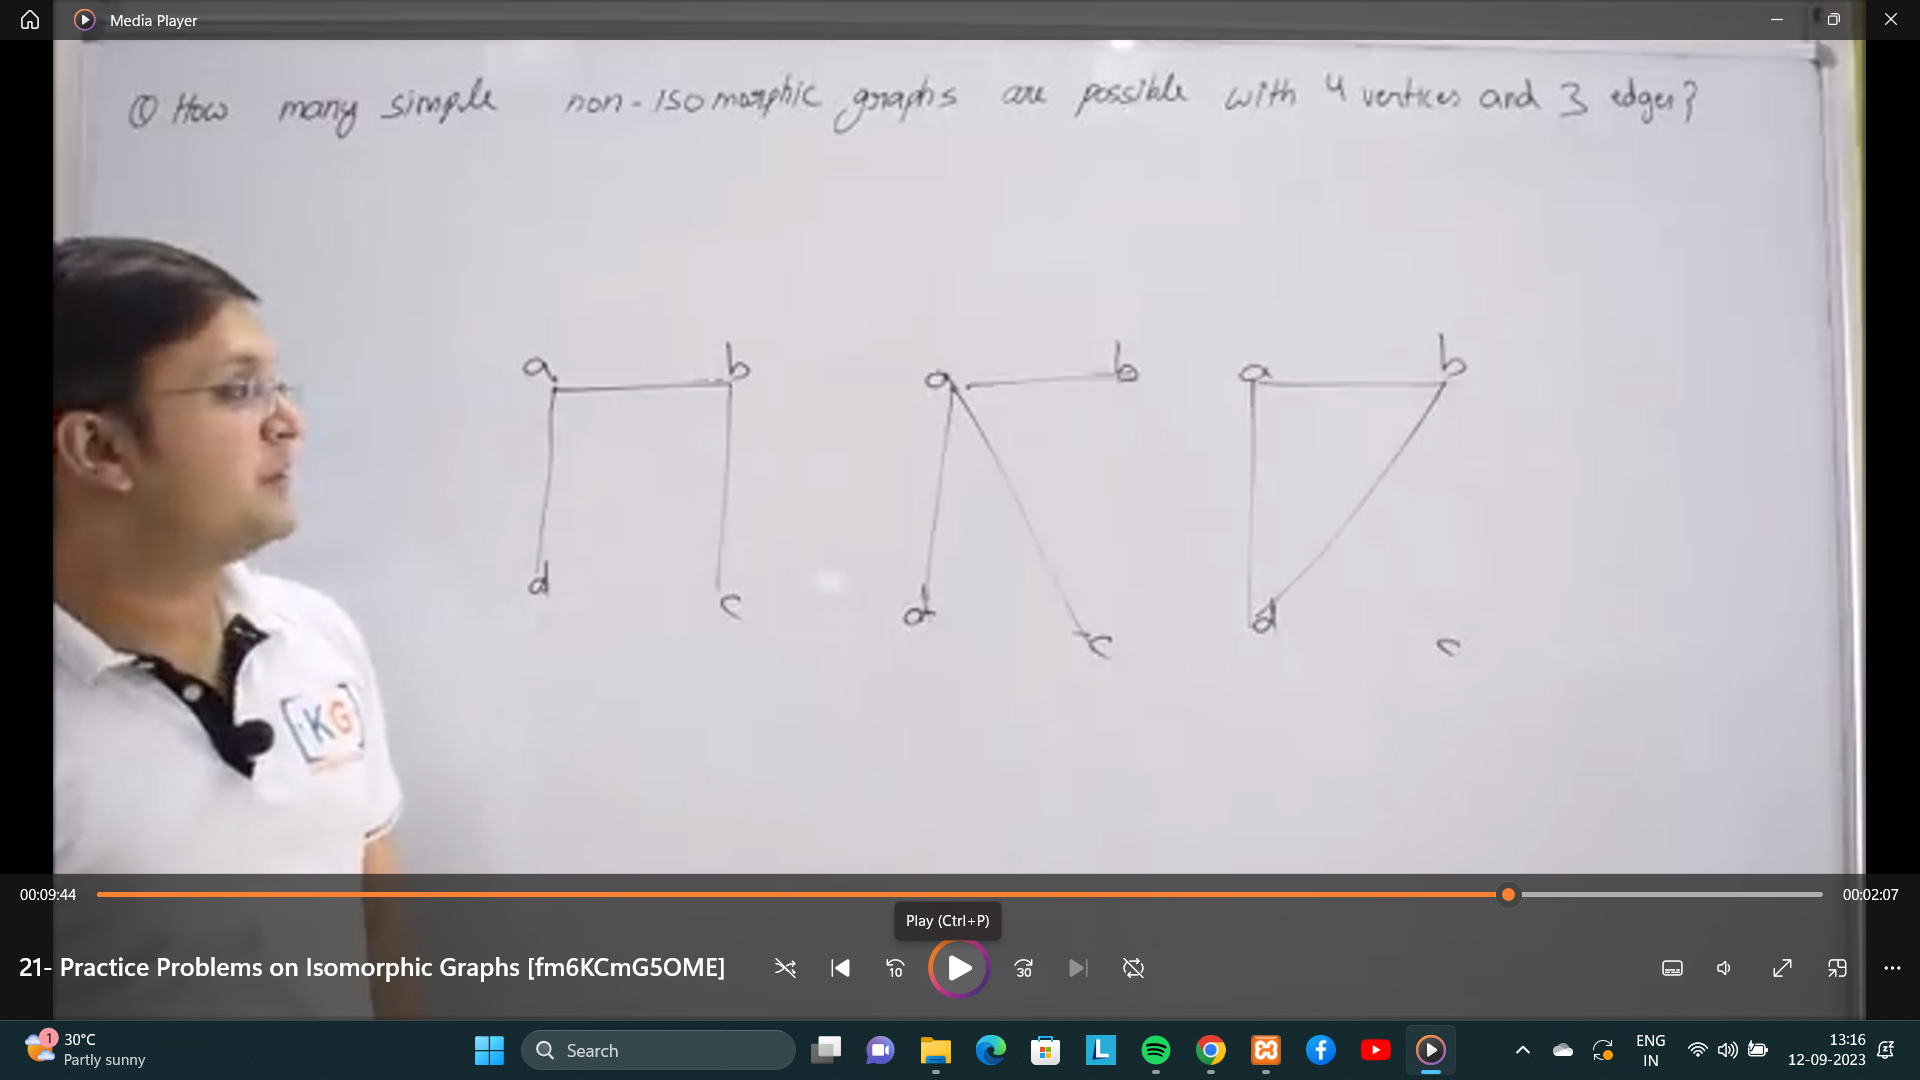 Media Player
① How many simple non-isomorphic graphs are possible with 4 vertices and 3 edges?
a b a b a b
d c d c d c
KG
00:09:44 00:02:07
Play (Ctrl+P)
21- Practice Problems on Isomorphic Graphs [fm6KCmG5OME]
10 30
1 30°C
Partly sunny
Search
L
ENG
IN
13:16
12-09-2023